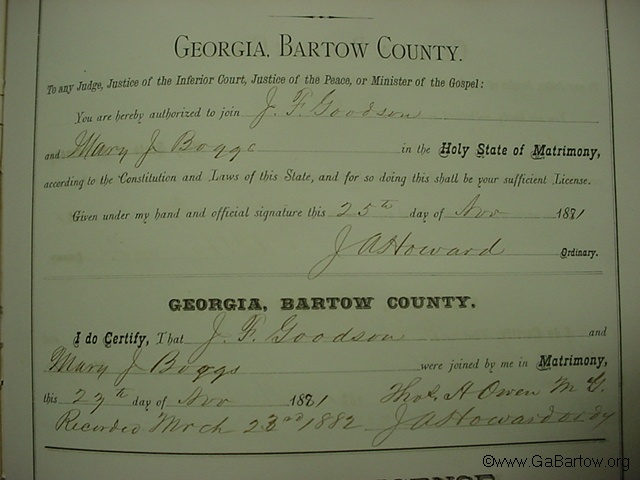 GEORGIA, BARTOW COUNTY.
To any Judge, Justice of the Inferior Court, Justice of the Peace, or Minister of the Gospel:
You are hereby authorized to join J. F. Goodson
and Mary J Boggs in the Holy State of Matrimony,
according to the Constitution and Laws of this State, and for so doing this shall be your sufficient License.
Given under my hand and official signature this 25th day of Nov 1881
J A Howard Ordinary.
GEORGIA, BARTOW COUNTY.
I do Certify, That J. F. Goodson and
Mary J Boggs were joined by me in Matrimony,
this 27th day of Nov 1881 Thos. A Owen M G.
Recorded Mrch 23rd 1882 J A Howard ordy
©www.GaBartow.org